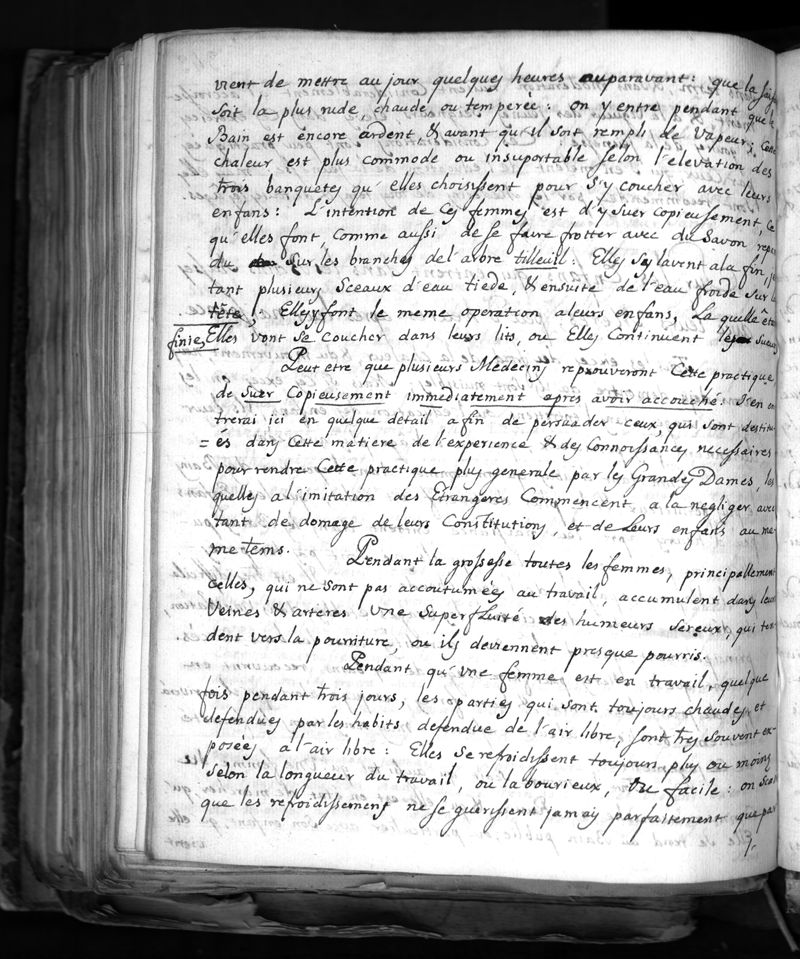 vient de mettre au jour quelques heures auparavant: que la
soit la plus rude, chaude, ou temperée: on y entre pendant que le
Bain est encore ardent & avant qu'il soit rempli de Vapeurs; Cette
chaleur est plus commode ou insuportable selon l'elevation des
trois banquetes qu'elles choisissent pour s'y coucher avec leurs
enfans: L'intention de Ces femmes est d'y suer copieusement, Ce
qu'elles font, Comme aussi de se faire frotter avec du Savon
du sur les branches de l'arbre tilleuil: Elles s'y lavent a la fin,
tant plusieurs Sceaux d'eau tiede, & ensuite de l'eau froide sur la
tête; Elles y font le meme operation a leurs enfans, La quelle
finie, Elles vont se coucher dans leurs lits, ou Elles Continuent
Peut etre que plusieurs Médecins reprouveront Cette practique
de Suer Copieusement immediatement apres avoir accouché: J'en en
trerai ici en quelque détail afin de persuader ceux, qui sont destitu
=és dans Cette matiere de l'experience & des Connoissances necessaires
pour rendre Cette practique plus generale par les Grandes Dames, les
quelles a l'imitation des Etrangeres Commencent a la negliger avec
tant de domage de leurs Constitutions, et de Leurs enfans au me-
me tems. Pendant la grossesse toutes les femmes, principallement
Celles, qui ne sont pas accoutumées au travail, accumulent dans leurs
Veines & arteres Une Superfluité des humeurs sereux qui ten
dent vers la pourriture, ou ils deviennent presque pourris.
Pendant qu'une femme est en travail, quelque
fois pendant trois jours, les parties qui sont toujours chaudes et
defendues par les habits, defendue de l'air libre, sont tres souvent ex-
posées a l'air libre: Elles se refroidissent toujours plus ou moins
selon la longueur du travail, ou labourieux, Ou facile: on
que les refroidissements ne se guerissent jamais parfaitement que par